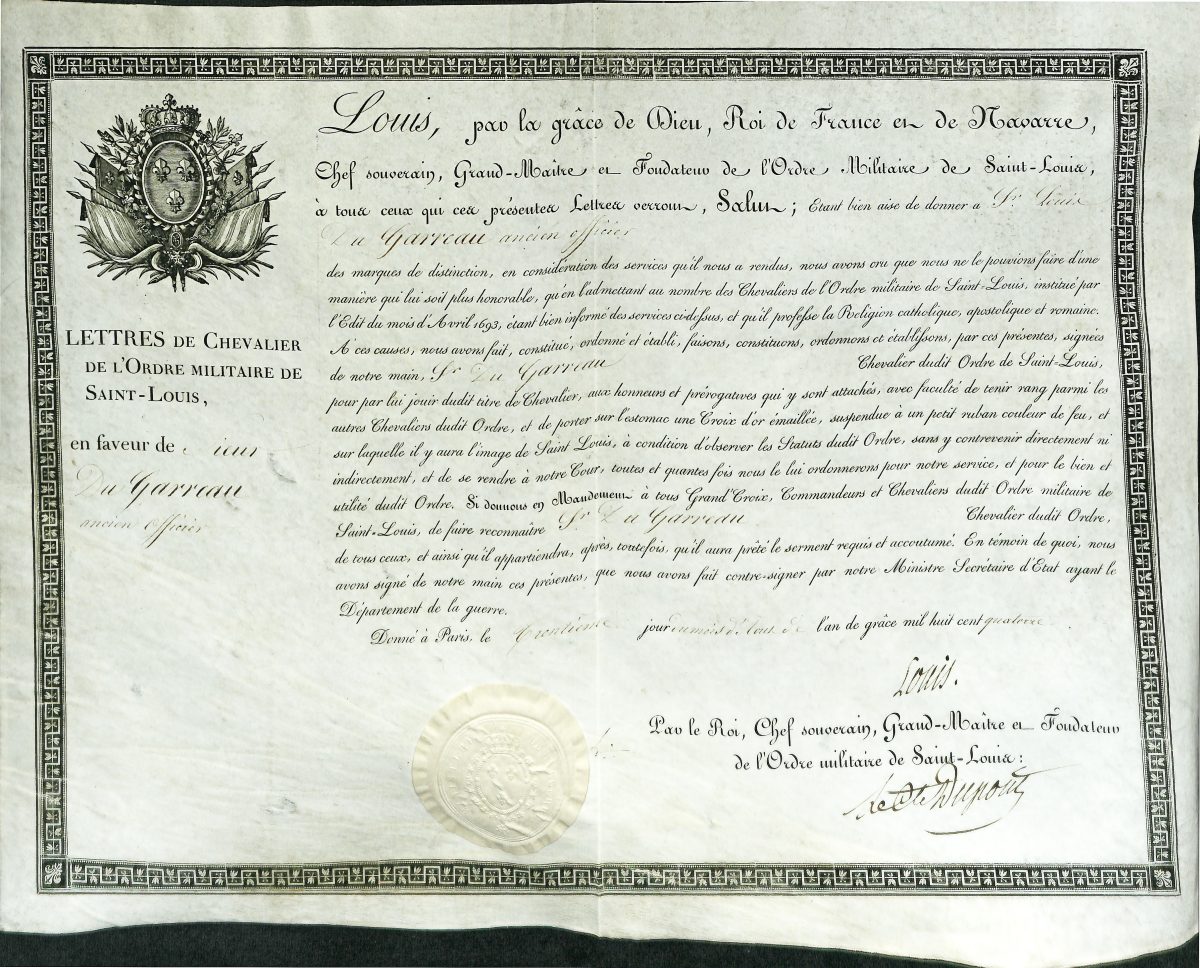 LETTRES DE CHEVALIER
DE L'ORDRE MILITAIRE DE
SAINT-LOUIS,
en faveur de Sieur
Du Garreau
ancien officier
Louis, par la grâce de Dieu, Roi de France et de Navarre,
Chef souverain, Grand-Maître et Fondateur de l'Ordre Militaire de Saint-Louis,
à tous ceux qui ces présentes Lettres verront, Salut; Etant bien aise de donner a Sr. Louis
Du Garreau ancien officier
des marques de distinction, en considération des services qu'il nous a rendus, nous avons cru que nous ne le pouvions faire d'une
manière qui lui soit plus honorable, qu'en l'admettant au nombre des Chevaliers de l'Ordre militaire de Saint-Louis, institué par
l'Edit du mois d'Avril 1693, étant bien informé des services ci-dessus, et qu'il professe la Religion catholique, apostolique et romaine.
A ces causes, nous avons fait, constitué, ordonné et établi, faisons, constituons, ordonnons et établissons, par ces présentes, signées
de notre main, Sr. Du Garreau Chevalier dudit Ordre de Saint-Louis,
pour par lui jouir dudit titre de Chevalier, aux honneurs et prérogatives qui y sont attachés, avec faculté de tenir rang parmi les
autres Chevaliers dudit Ordre, et de porter sur l'estomac une Croix d'or émaillée, suspendue à un petit ruban couleur de feu, et
sur laquelle il y aura l'image de Saint Louis, à condition d'observer les Statuts dudit Ordre, sans y contrevenir directement ni
indirectement, et de se rendre à notre Cour, toutes et quantes fois nous le lui ordonnerons pour notre service, et pour le bien et
utilité dudit Ordre. Si donnons en Mandement à tous Grand'Croix, Commandeurs et Chevaliers dudit Ordre militaire de
Saint-Louis, de faire reconnaître Sr. Du Garreau Chevalier dudit Ordre,
de tous ceux, et ainsi qu'il appartiendra, après, toutefois, qu'il aura prêté le serment requis et accoutumé. En témoin de quoi, nous
avons signé de notre main ces présentes, que nous avons fait contre-signer par notre Ministre Secrétaire d'Etat ayant le
Département de la guerre.
Donné à Paris, le trentieme jour du mois d'Aout de l'an de grâce mil huit cent quatorze
Louis.
Par le Roi, Chef souverain, Grand-Maître et Fondateur
de l'Ordre militaire de Saint-Louis:
le Cte Dupont